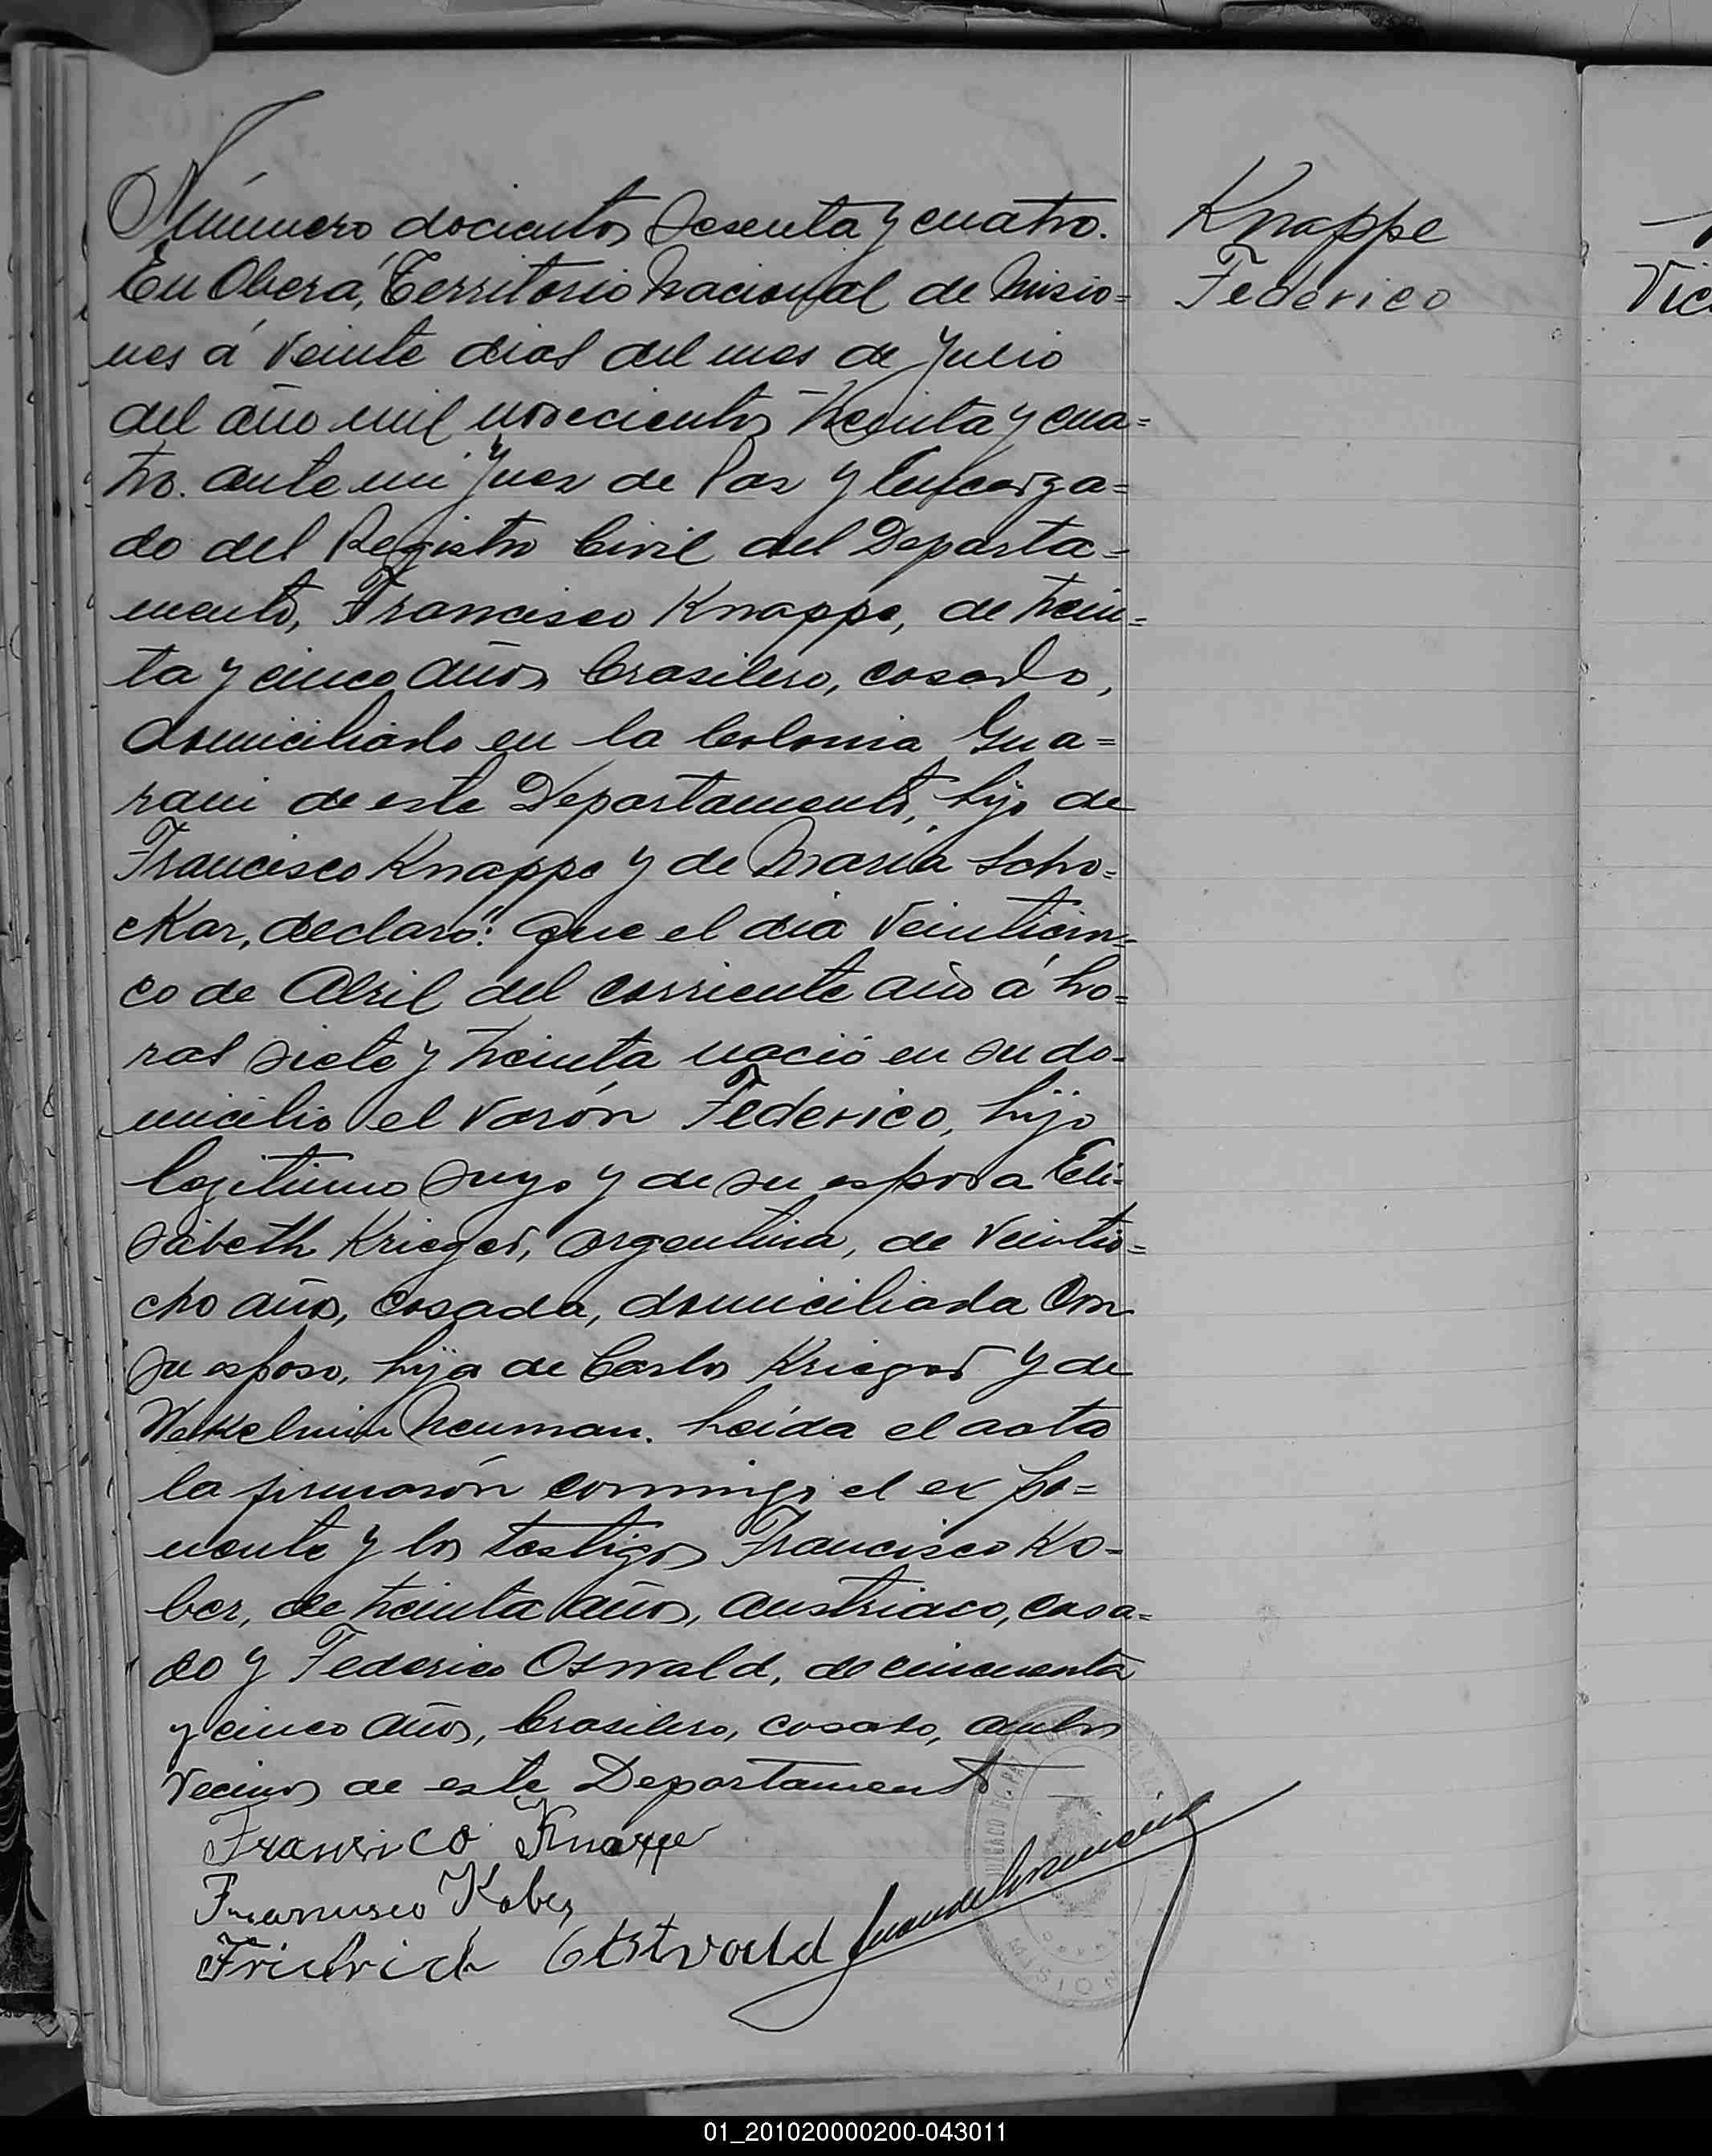 Número docientos sesenta y cuatro.
En Oberá, Territorio Nacional de Misio=
nes á veinte dias del mes de Julio
del año mil novecientos treinta y cua=
tro. ante mi Juez de Paz y Encarga=
do del Registro Civil del Departa=
mento, Francisco Knappe, de trein=
ta y cinco años brasilero, casado,
domiciliado en la Colonia Gua=
rani de este Departamento, hijo de
Francisco Knappe y de Maria Scho=
ckar, declaró: que el dia veinticin=
co de Abril del corriente año á ho=
ras siete y treinta nació en su do=
micilio el varón Federico, hijo
legitimo suyo y de su esposa Eli=
sabeth Krieger, argentina, de veintio=
cho años, casada, domiciliada con
su esposo, hija de Carlos Krieger y de
Neuman. Leida el acta
la firmarón conmigo el expo=
nente y los testigos Francisco Ko=
ber, de treinta años, austriaco, casa=
do y Federico Oswald, de cincuenta
y cinco años, brasilero, casado, ambos
vecinos de este Departamento
Knappe
Kober
Friedrich
Knappe
Federico
Vic
01_201020000200-043011